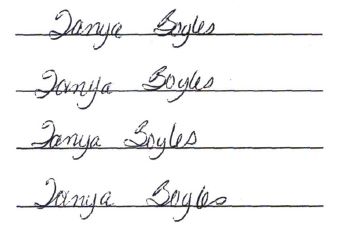 Tanya Boyles
Tanya Boyles
Tanya Boyles
Tanya Boyles